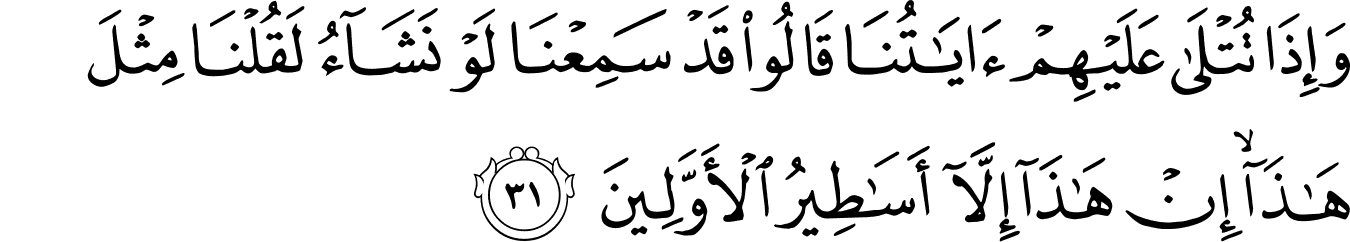 وَإِذَا تُتْلَىٰ عَلَيْهِمْ ءَايَـٰتُنَا قَالُوا۟ قَدْ سَمِعْنَا لَوْ نَشَآءُ لَقُلْنَا مِثْلَ
هَـٰذَآ ۙ إِنْ هَـٰذَآ إِلَّآ أَسَـٰطِيرُ ٱلْأَوَّلِينَ ٣١